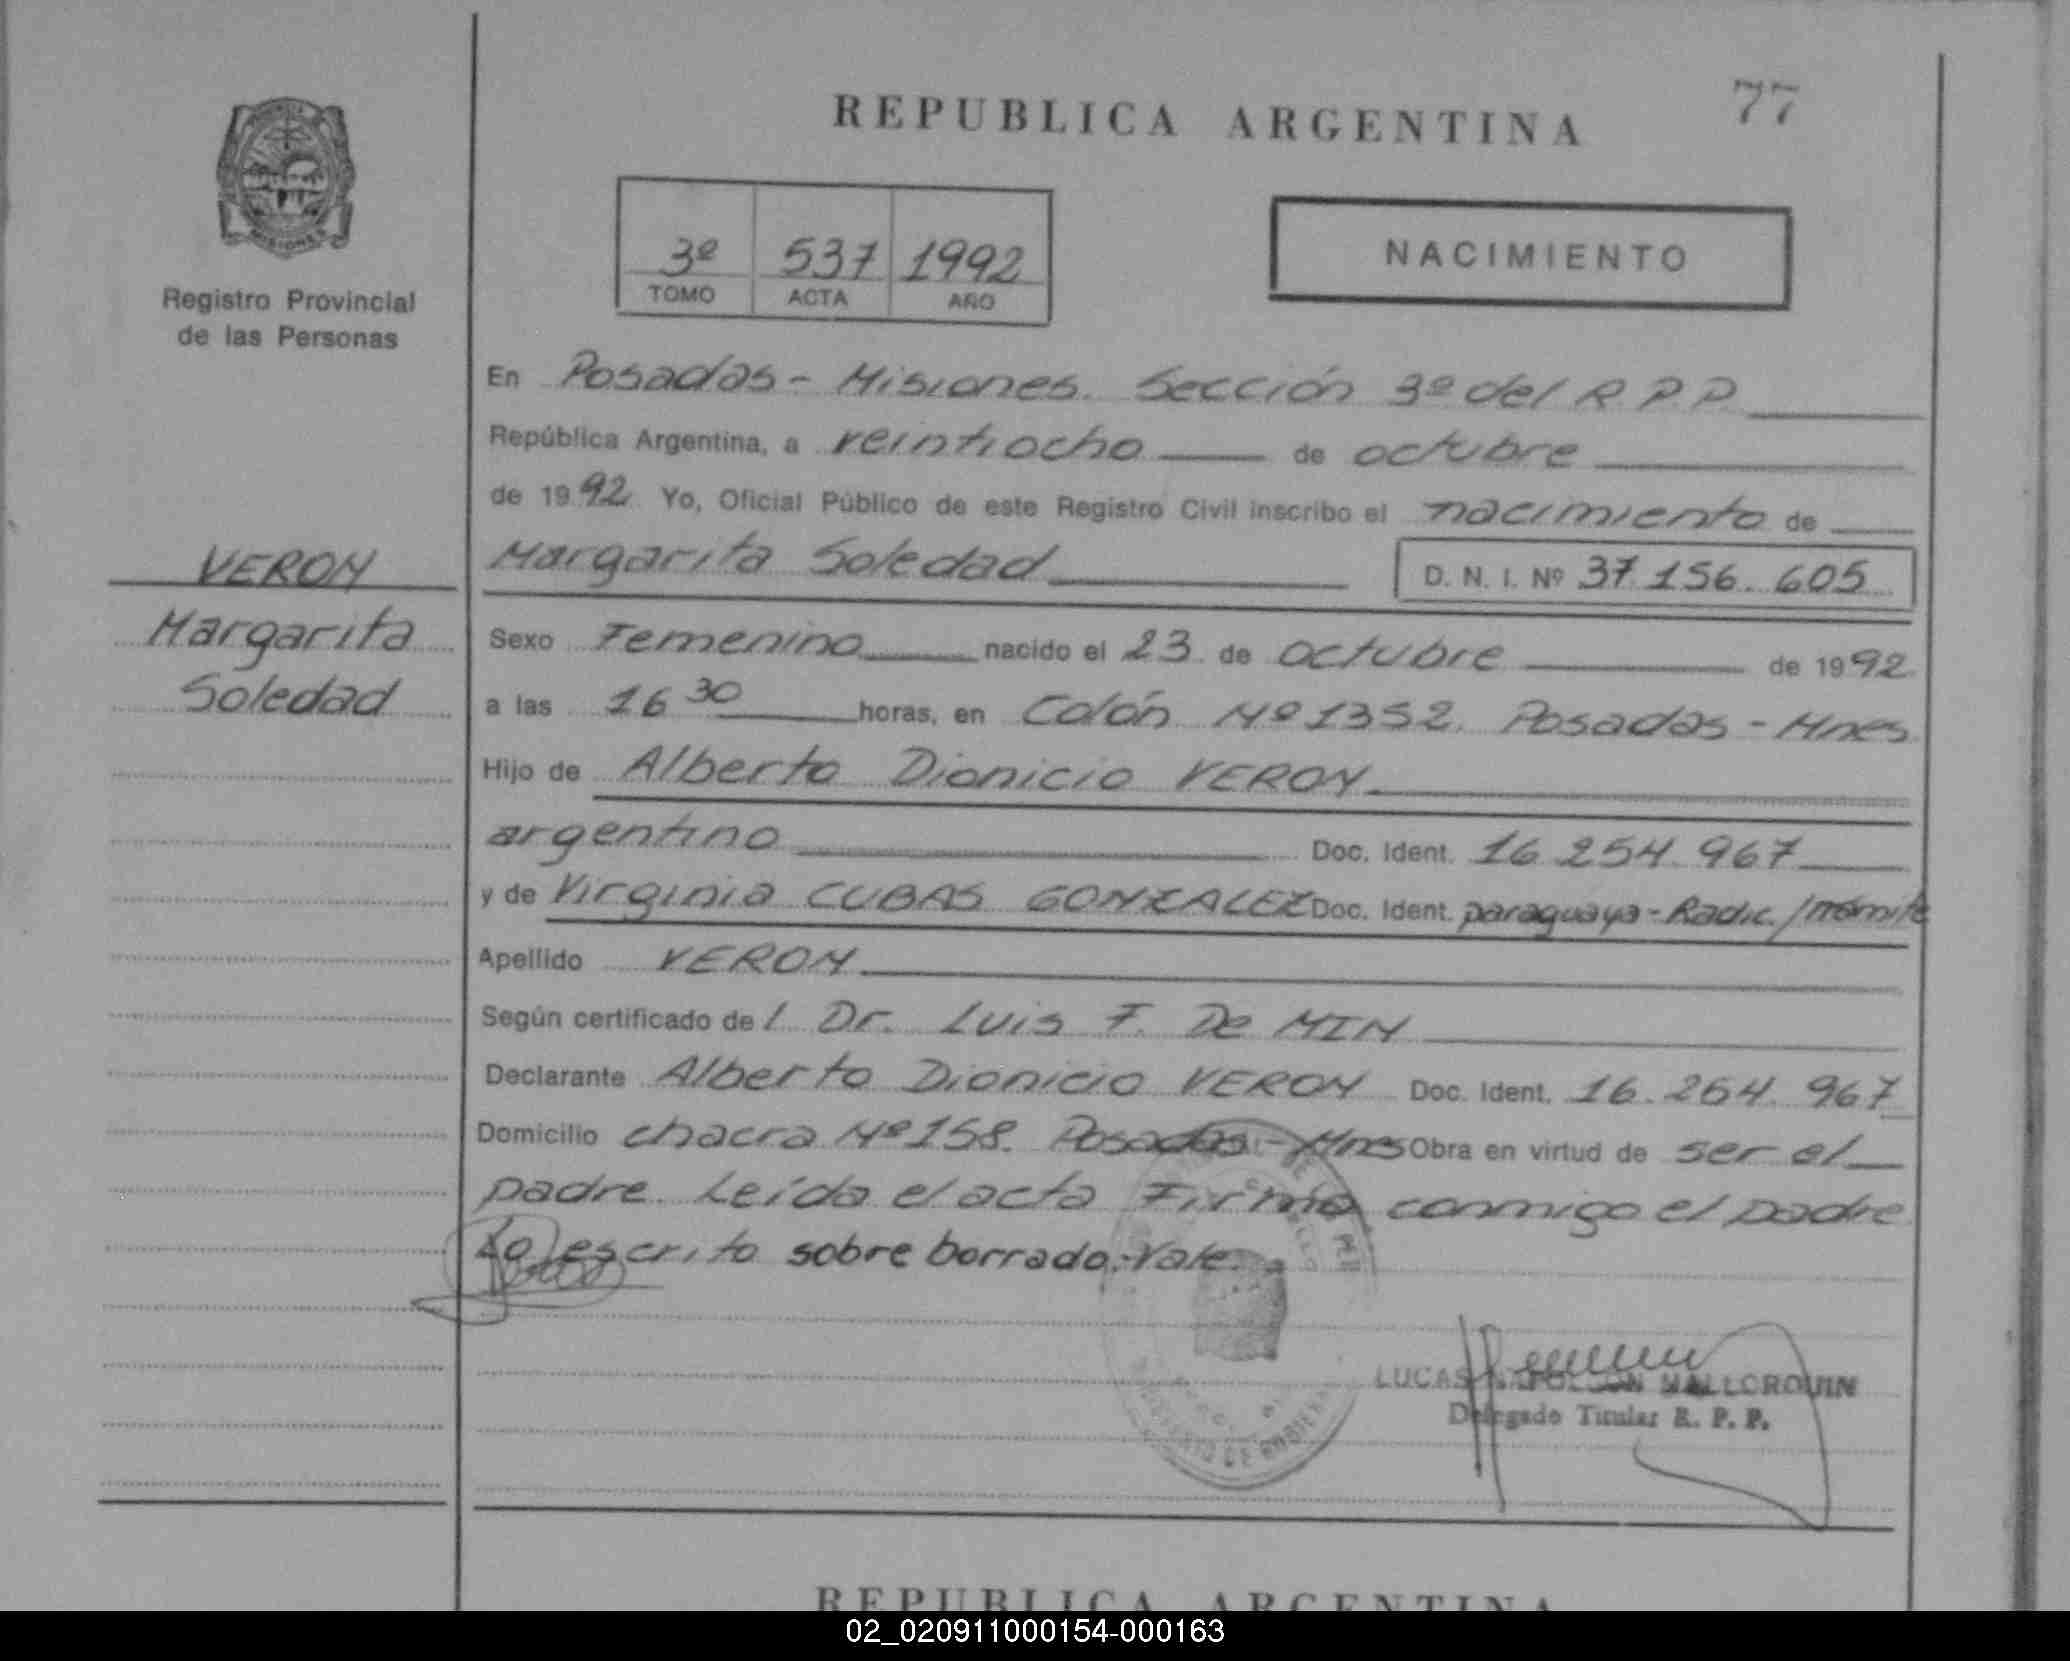 77
REPUBLICA ARGENTINA
MISIONES
Registro Provincial
de las Personas
3º 537 1992
TOMO ACTA AÑO
NACIMIENTO
En Posadas - Misiones. Sección 3º del R.P.P.
República Argentina, a veintiocho de octubre
de 1992. Yo, Oficial Público de este Registro Civil inscribo el nacimiento de
VERON
Margarita
Soledad
Margarita Soledad D. N. I. Nº 37.156.605
Sexo Femenino nacido el 23 de octubre de 1992
a las 16 30 horas, en Colón Nº 1352. Posadas - Mnes
Hijo de Alberto Dionicio VERON
argentino Doc. Ident. 16.254.967
y de Virginia CUBAS GONZALEZ Doc. Ident. paraguaya - Radic. / trámite
Apellido VERON
Según certificado de l Dr. Luis F. De MIN
Declarante Alberto Dionicio VERON Doc. Ident. 16.254.967
Domicilio chacra Nº 158. Posadas - Mnes Obra en virtud de ser el
padre. Leída el acta Firma conmigo el padre
Lo escrito sobre borrado:-Vale.
LUCAS NAPOLEON MALLORQUIN
Delegado Titular R. P. P.
REPUBLICA ARGENTINA
02_020911000154-000163